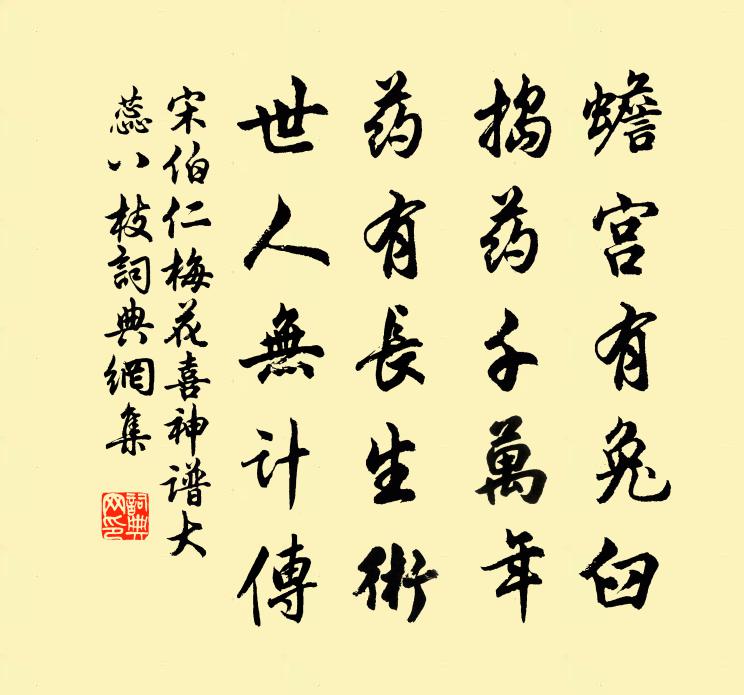 蟾宫有兔臼
搗药千萬年
药有長生術
世人無計傳
宋伯仁梅花喜神谱大
蕊八枝詞典網集
詞典网印